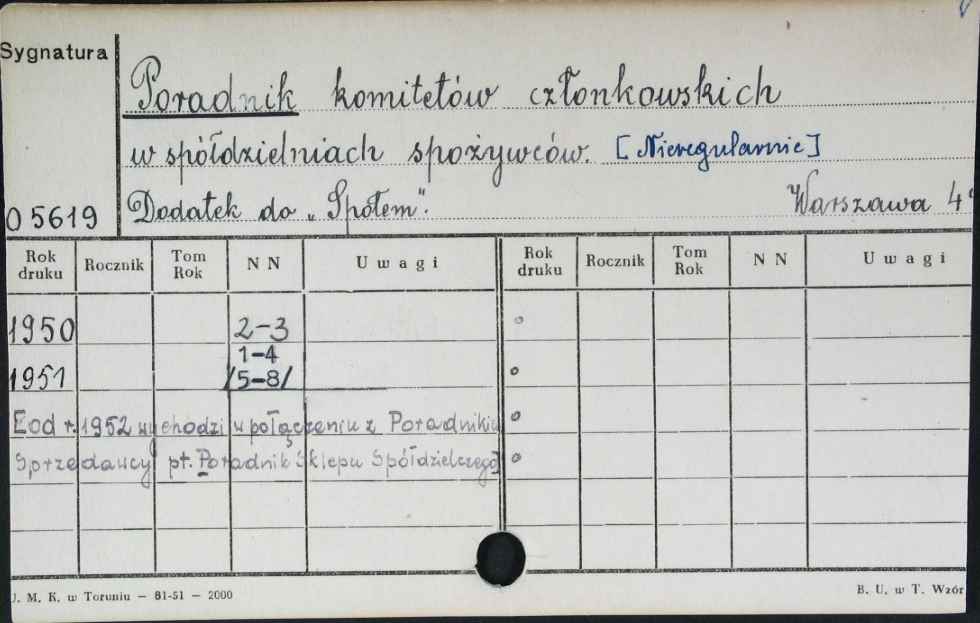 Sygnatura
Poradnik komitetów członkowskich
w spółdzielniach spożywców. [Nieregularnie]
O 5619
Dodatek do „Społem”. Warszawa 4°
Rok druku Rocznik Tom Rok N N Uwagi Rok druku Rocznik Tom Rok N N Uwagi
1950 2-3
1-4
1951 /5-8/
[od r. 1952 wychodzi w połączeniu z Poradnikiem
Sprzedawcy pt. Poradnik Sklepu Spółdzielczego]
J. M. K. w Toruniu — 81-51 — 2000
B. U. w T. Wzór